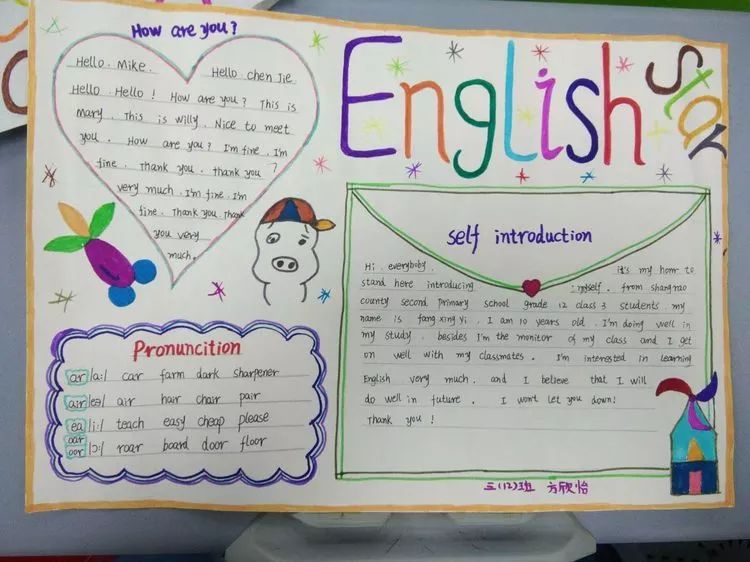 How are you?
Hello. Mike. Hello chen Jie
Hello. Hello! How are you? This is
Mary. This is willy. Nice to meet
you. How are you? I'm fine. I'm
fine. Thank you. thank you?
very much. I'm fine. I'm
fine. Thank you. Thank
you very
much.
English
Star
self introduction
Hi. everyboby. It's my honr to
stand here introducing myself. from shangrao
county second primary school grade 12 class 3 students. my
name is fang xing yi. I am 10 years old. I'm doing well in
my study. besides I'm the monitor of my class and I get
on well with my classmates. I'm interested in learning
English very much. and I believe that I will
do well in future. I won't let you down!
Thank you!
Pronuncition
ar /a:/ car farm dark sharpener
air /eə/ air hair chair pair
ea /i:/ teach easy cheap please
oar
oor /ɔ:/ roar board door floor
三(12)班 方欣怡